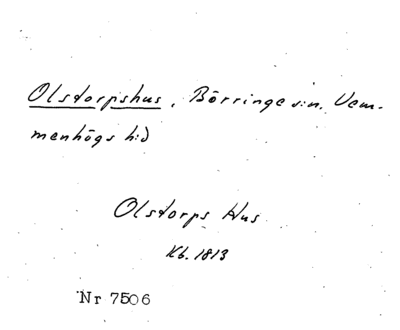 Olstorpshus, Börringe s:n. Vem-
menhögs h:d
Olstorps Hus
Kb. 1813
Nr 7506